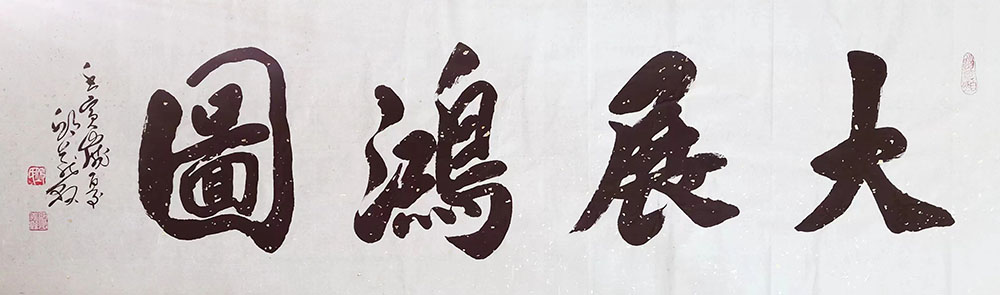 大展鴻圖
壬寅歲夏